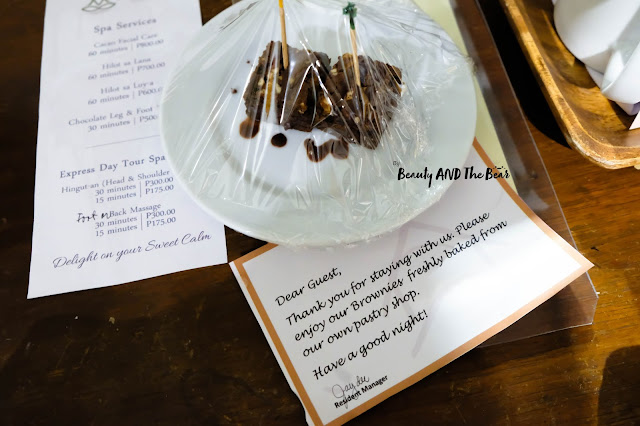 Spa Services
Cacao Facial Care
60 minutes | P800.00
Hilot sa Lana
60 minutes | P700.00
Hilot sa Luy-a
60 minutes | P600
Chocolate Leg & Foot
30 minutes | P500
Express Day Tour Spa
Hingut-an (Head & Shoulder
30 minutes | P300.00
15 minutes | P175.00
Back Massage
30 minutes | P300.00
15 minutes | P175.00
Delight on your Sweet Calm
By
Beauty AND The Bear
Dear Guest,
Thank you for staying with us. Please
enjoy our Brownies freshly baked from
our own pastry shop.
Have a good night!
Resident Manager